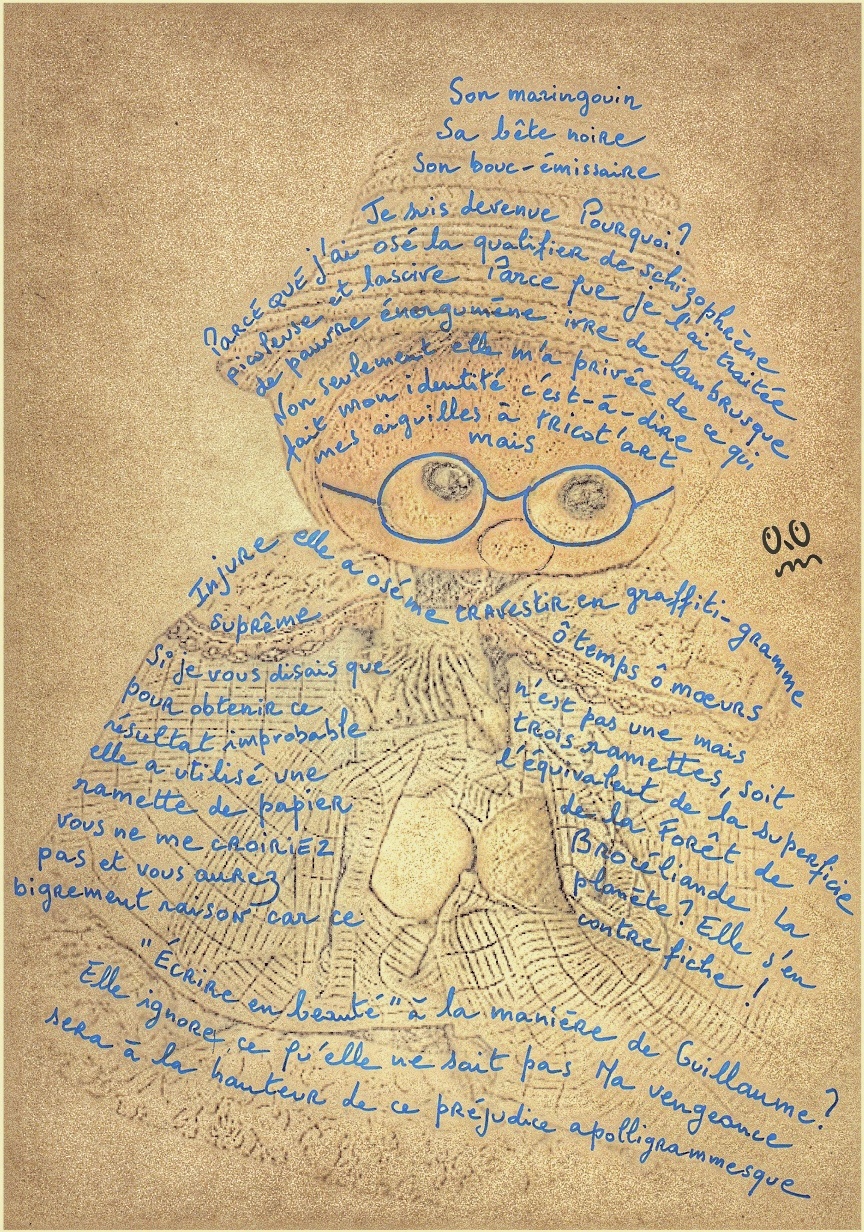 Son maringouin
Sa bête noire
Son bouc-émissaire
Je suis devenue Pourquoi ?
Parcé qué j'ai osé la qualifier de schizophrène
picoleuse et lascive Parce que je l'ai traitée
de pauvre énergumène ivre de lambrusque
Non seulement elle m'a privée de ce qui
fait mon identité c'est-à-dire
mes aiguilles à tricot'art
mais
Injure elle a osé me travestir en graffiti-gramme
suprême
ô temps ô moeurs
Si je vous disais que
pour obtenir ce
résultat improbable
elle a utilisé une
ramette de papier
vous ne me croiriez
pas et vous aurez
bigrement raison car ce
n'est pas une mais
trois ramettes, soit
l'équivalent de la superficie
de la Forêt de
Brocéliande La
planète ? Elle s'en
contre fiche !
"Écrire en beauté" à la manière de Guillaume ?
Elle ignore ce qu'elle ne sait pas Ma vengeance
sera à la hauteur de ce préjudice apolligrammesque